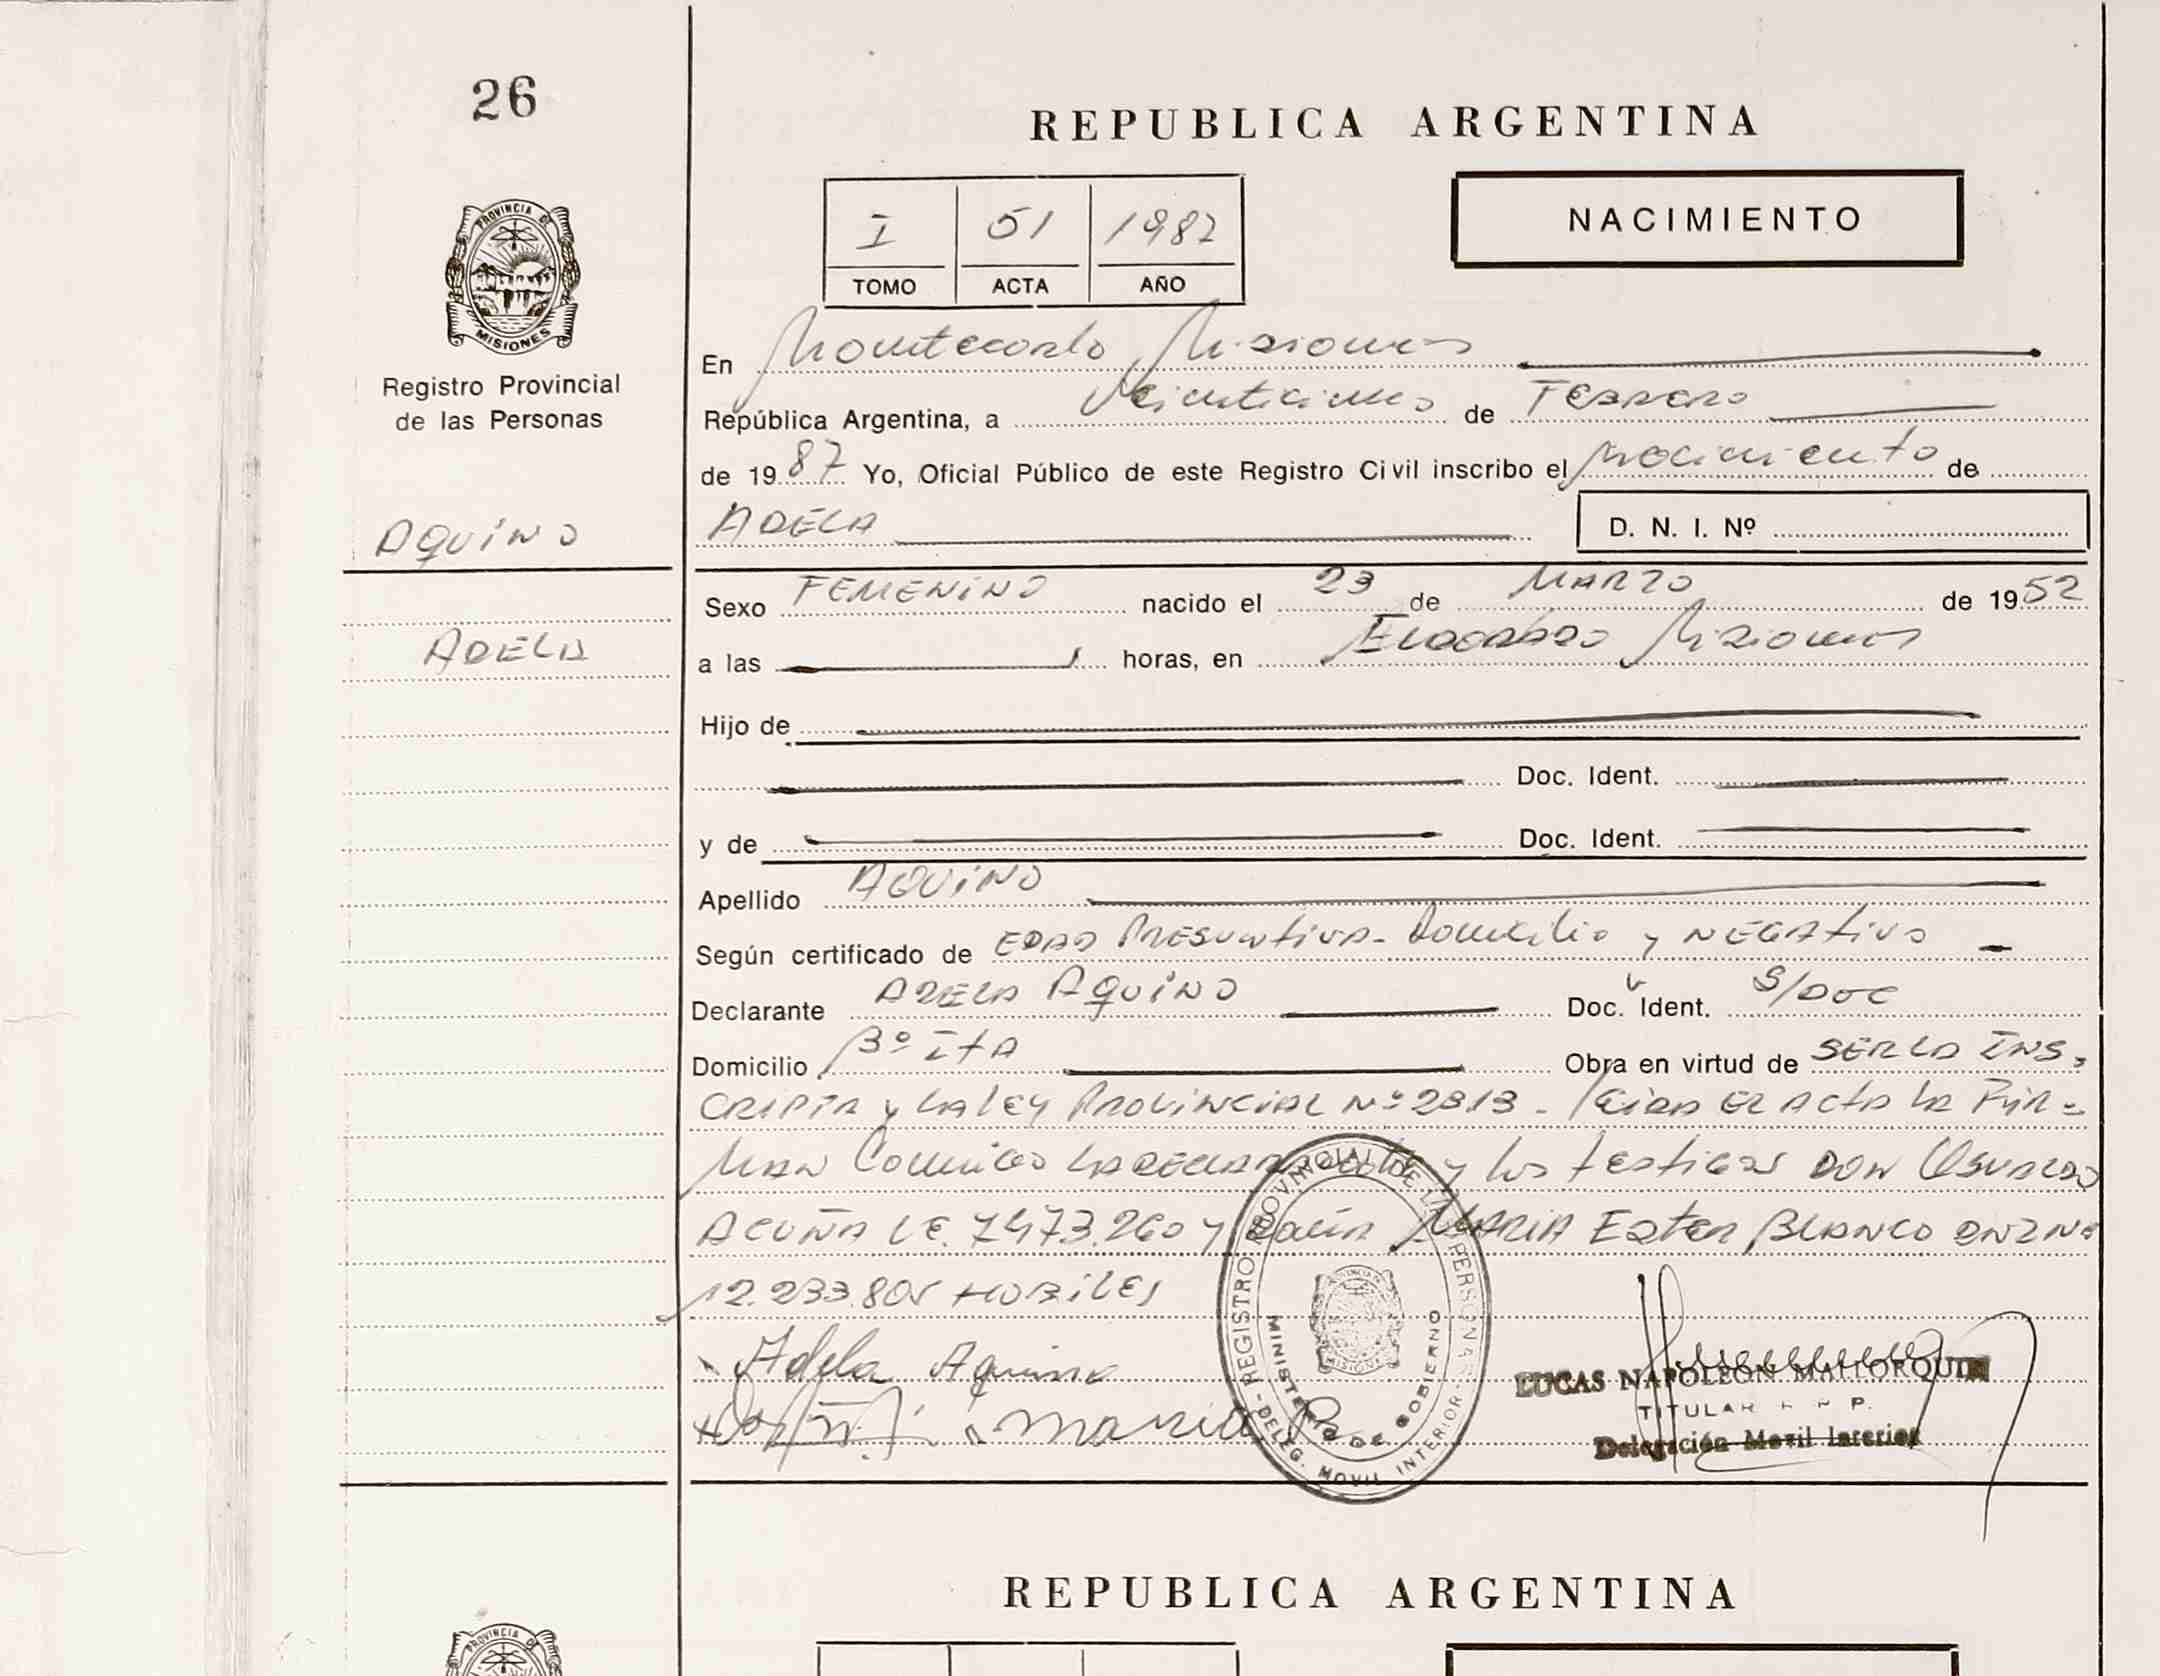 26
REPUBLICA ARGENTINA
PROVINCIA DE
MISIONES
Registro Provincial
de las Personas
I 51 1987
TOMO ACTA AÑO
NACIMIENTO
En Montecarlo Misiones
República Argentina, a Veinticinco de Febrero
de 1987 Yo, Oficial Público de este Registro Civil inscribo el nacimiento de
AQUINO
ADELA
D. N. I. Nº
Sexo FEMENINO nacido el 23 de MARZO de 1952
ADELA
a las horas, en Eldorado Misiones
Hijo de
Doc. Ident.
y de Doc. Ident.
Apellido AQUINO
Según certificado de EDAD PRESUNTIVA - Domicilio y NEGATIVO
Declarante ADELA AQUINO Doc. Ident. S/DOC
Domicilio Bº ITA Obra en virtud de SERLO INS-
CRIPTA y LA LEY PROVINCIAL Nº 2313 - Leida EL ACTA LA FIR-
MAN Conmigo LA DECLARANTE y los testigos DON OSVALDO
ACUÑA LE. 7473.260 y DOÑA MARIA Ester BLANCO DNI Nº
12.233.805 HABILES
Adela Aquino
maria
REGISTRO PROVINCIAL DE LAS PERSONAS
MINISTERIO DE GOBIERNO
DELEG. MOVIL INTERIOR
LUCAS NAPOLEON MALLORQUIN
TITULAR R P.
Delegación Movil Interior
REPUBLICA ARGENTINA
PROVINCIA DE